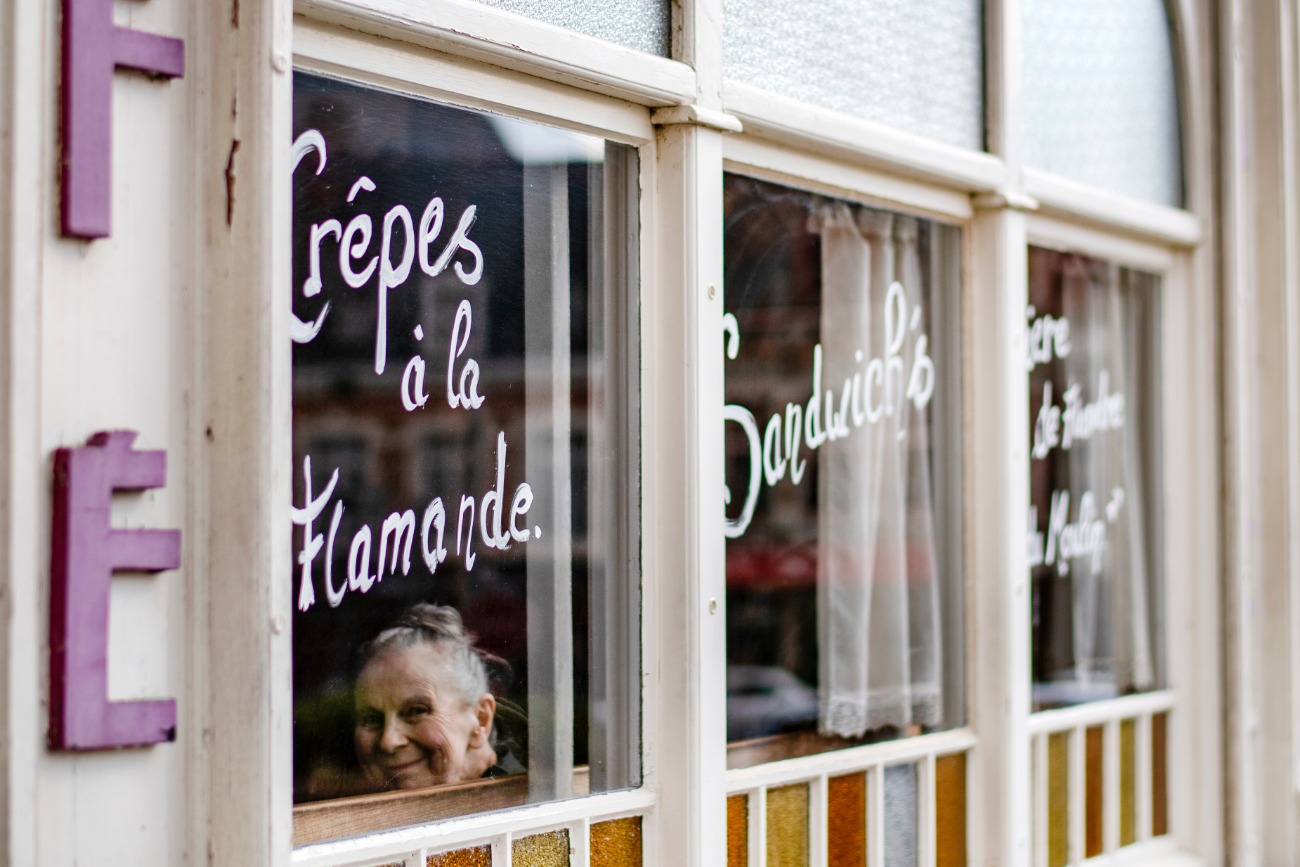 F
E
Crêpes
à la
Flamande.
Sandwich's
de Flandre
du Moulin"